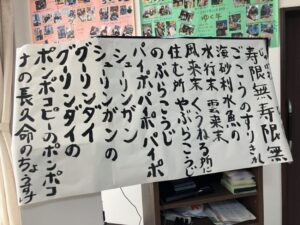 寿限無寿限無
ごこうのすりきれ
海砂利水魚の
水行末 雲来末
風来末 くうねる所に
住む所 やぶらこうじ
のぶらこうじ
パイポパイポ パイポ
シューリンガン
シューリンガンの
グリンダイ
グリンダイの
ポンポコピーのポンポコ
ナの長久命のちょうすけ